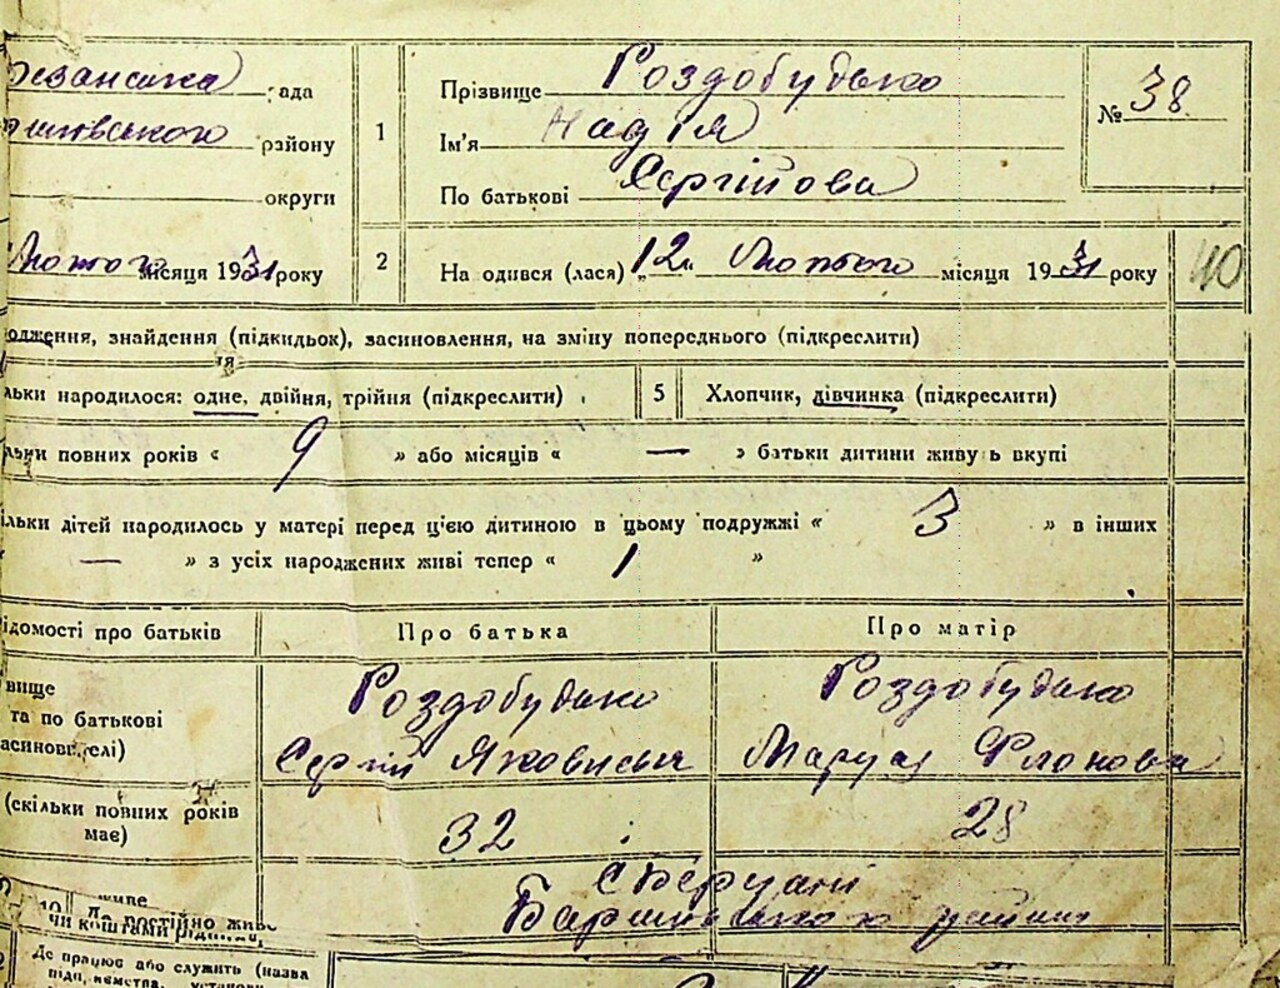 рада
Прізвище Роздобудько
№ 38
району
1
Ім'я Надія
округи
По батькові Сергійова
Лютого місяця 1931 року
2
На одився (лася) „12“ Лютого місяця 1931 року
40
одження, знайдення (підкидьок), засиновлення, на зміну попереднього (підкреслити)
льки народилося: одне, двійня, трійня (підкреслити)
5
Хлопчик, дівчинка (підкреслити)
льки повних років « 9 » або місяців « — » батьки дитини живу ь вкупі
ільки дітей народилось у матері перед ц'єю дитиною в цьому подружжі « 3 » в інших
« — » з усіх народжених живі тепер « 1 »
ідомості про батьків
Про батька
Про матір
вище
та по батькові
Роздобудько
Сергій Якович
Роздобудько
Маруся
(скільки повних років
має)
32
28
10
Де постійно живе
чи коштами
Де працює або служить (назва